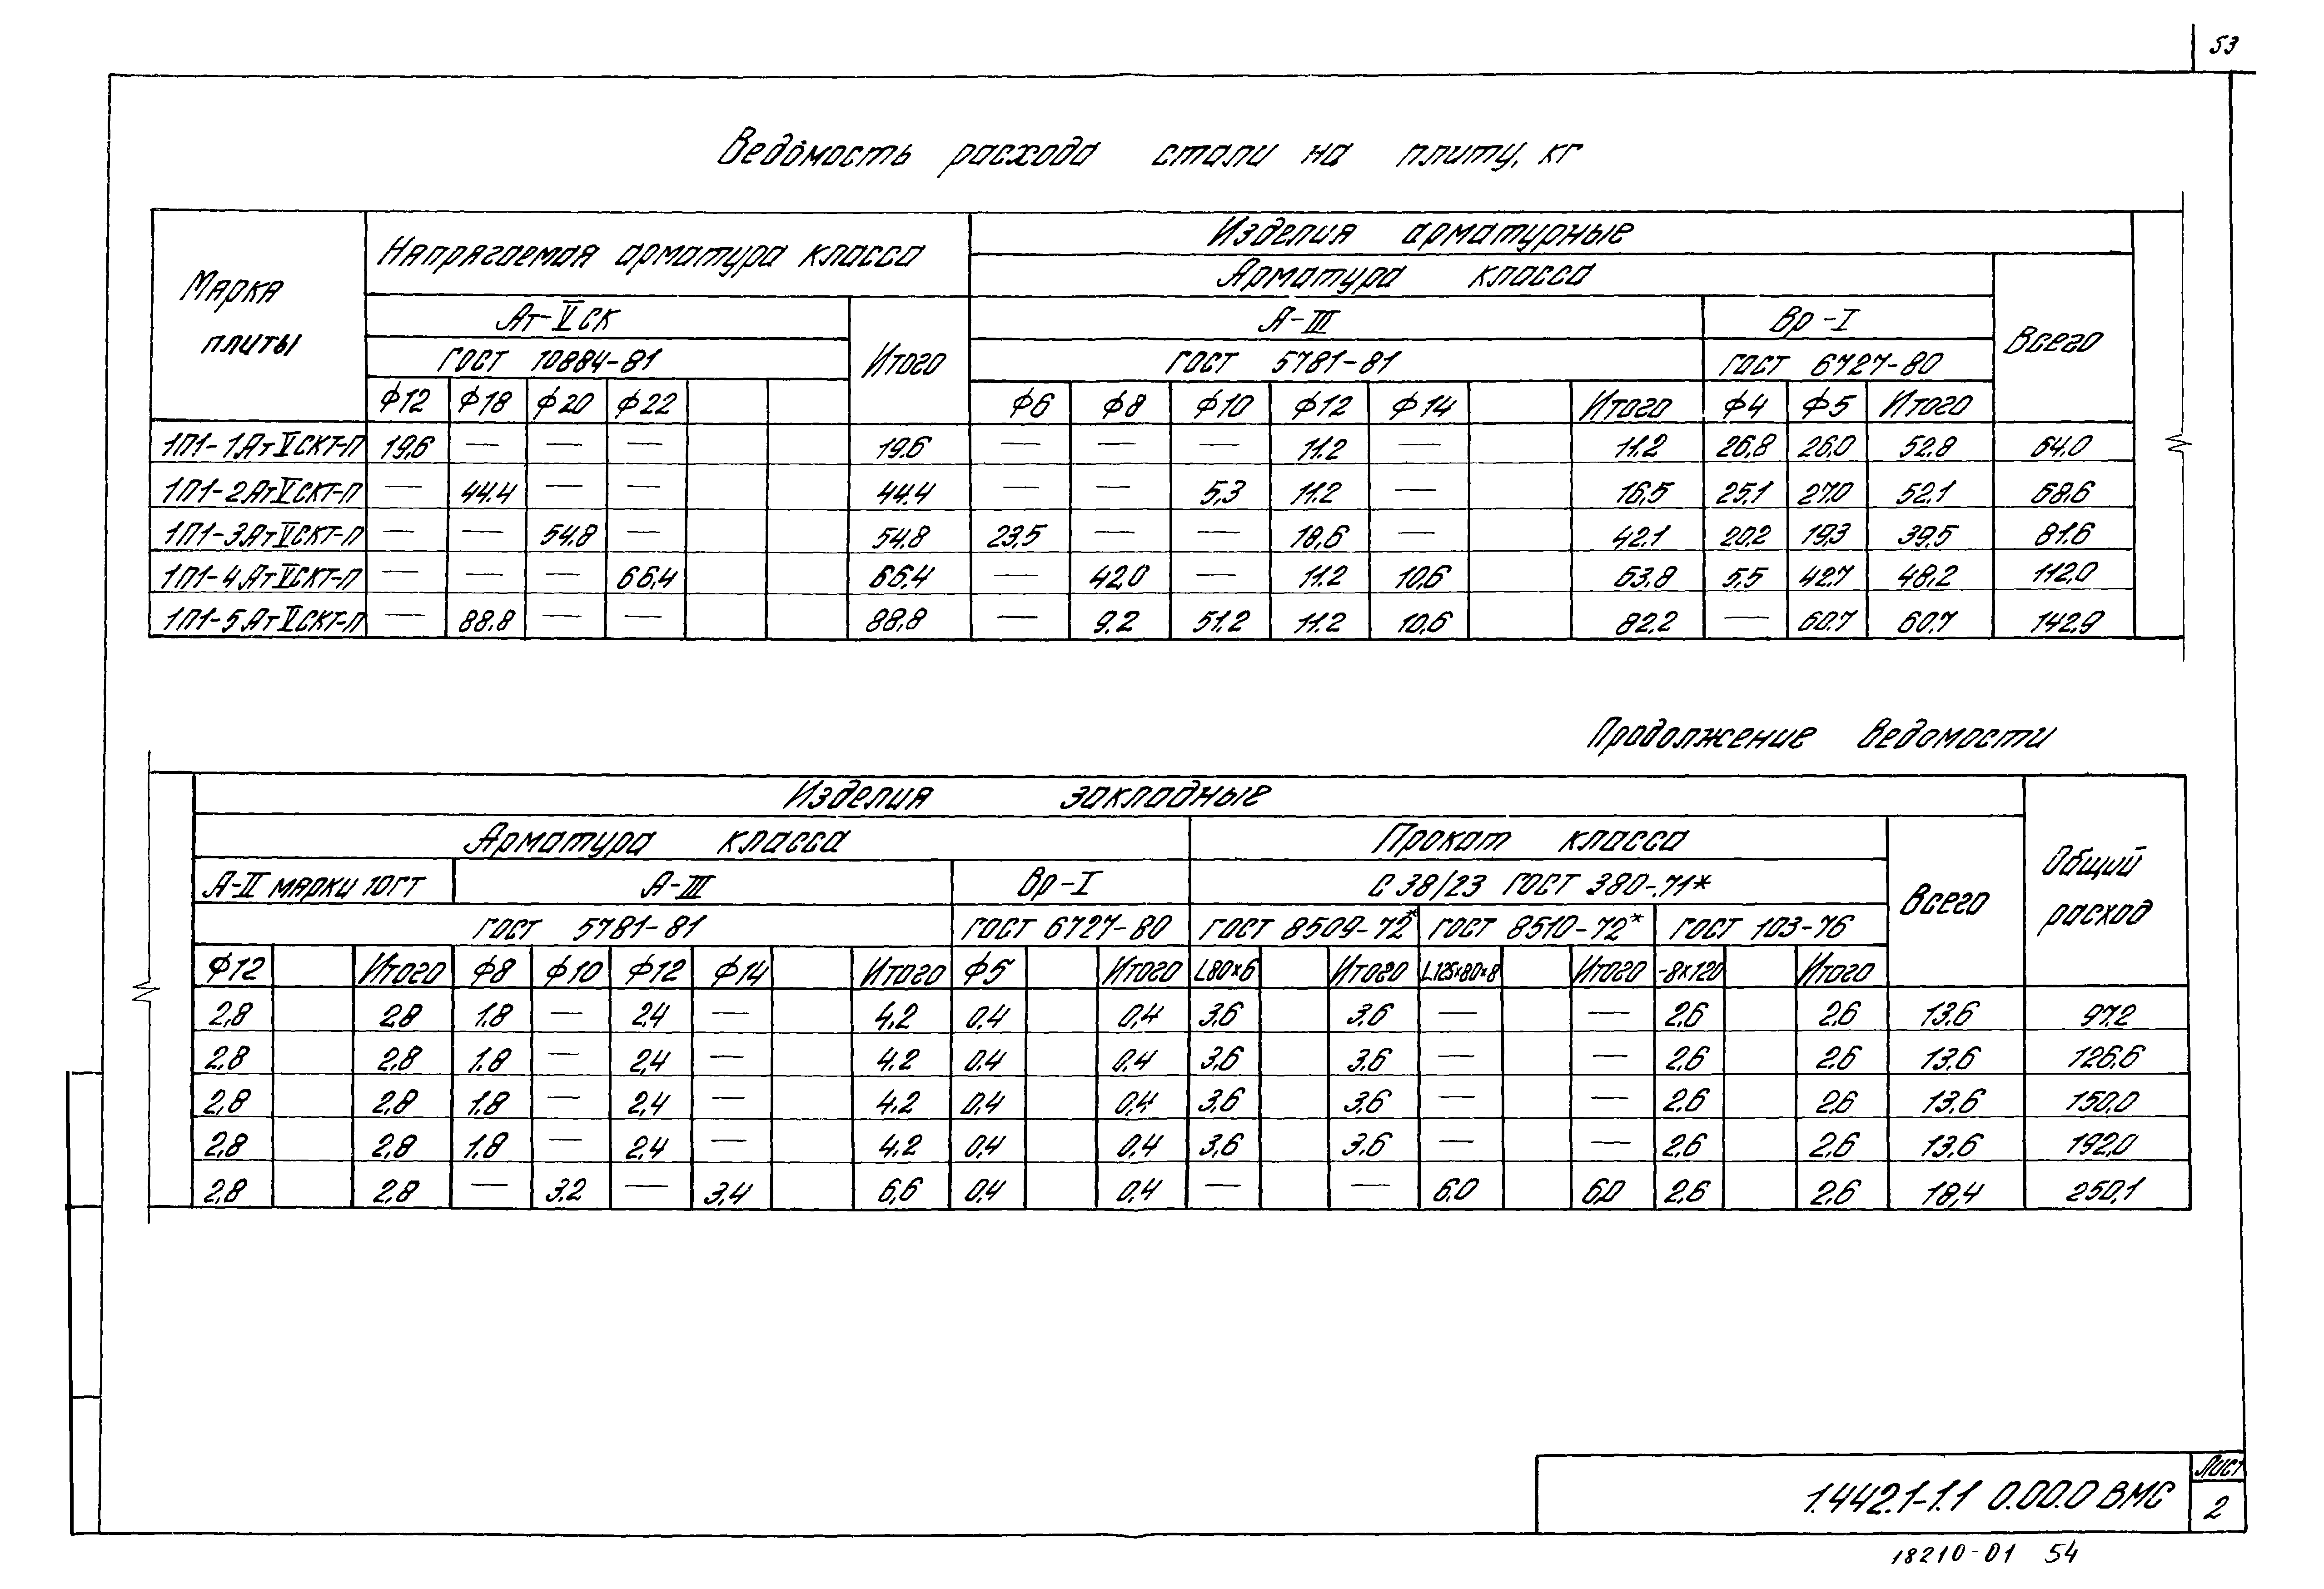 53
Ведомость расхода стали на плиту, кг
Марка плиты
Напрягаемая арматура класса
Изделия арматурные
Арматура класса
Ат-V СК
Итого
А-III
Вр-I
Всего
ГОСТ 10884-81
ГОСТ 5781-81
ГОСТ 6727-80
ф12 ф18 ф20 ф22 ф6 ф8 ф10 ф12 ф14 Итого ф4 ф5 Итого
1П1-1АтVСКТ-П 19,6 — — — 19.6 — — — 11.2 — 11.2 26,8 26.0 52.8 64.0
1П1-2АтVСКТ-П — 44.4 — — 44.4 — — 5,3 11.2 — 16,5 25.1 27.0 52.1 68.6
1П1-3АтVСКТ-П — — 54.8 — 54.8 23,5 — — 18,6 — 42.1 20.2 19,3 39,5 81.6
1П1-4АтVСКТ-П — — — 66,4 66.4 — 42.0 — 11.2 10,6 63.8 5,5 42.7 48,2 112,0
1П1-5АтVСКТ-П — 88,8 — — 88,8 — 9.2 51.2 11.2 10,6 82.2 — 60.7 60.7 142,9
Продолжение ведомости
Изделия закладные
Арматура класса
Прокат класса
Всего
Общий расход
А-II марки 10ГТ
А-III
Вр-I
С 38/23 ГОСТ 380-71*
ГОСТ 5781-81
ГОСТ 6727-80
ГОСТ 8509-72*
ГОСТ 8510-72*
ГОСТ 103-76
ф12 Итого ф8 ф10 ф12 ф14 Итого ф5 Итого L80×6 Итого L125×80×8 Итого -8×120 Итого
2,8 2,8 1.8 — 2,4 — 4,2 0,4 0,4 3,6 3,6 — — 2,6 2,6 13,6 97,2
2,8 2,8 1.8 — 2,4 — 4,2 0,4 0,4 3,6 3,6 — — 2,6 2,6 13,6 126,6
2,8 2,8 1.8 — 2,4 — 4,2 0,4 0,4 3,6 3,6 — — 2,6 2,6 13,6 150,0
2,8 2,8 1.8 — 2,4 — 4,2 0,4 0,4 3,6 3,6 — — 2,6 2,6 13,6 192,0
2,8 2,8 — 3.2 — 3,4 6,6 0,4 0,4 — — 6,0 6,0 2,6 2,6 18,4 250,1
1.442.1-1.1 0.00.0 ВМС
Лист
2
18210-01 54